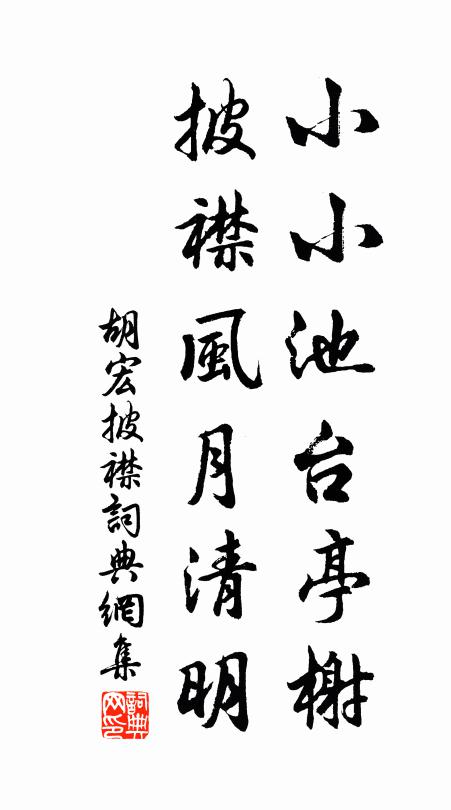 小小池台亭榭
披襟風月清明
胡宏披襟詞典網集
詞典网印